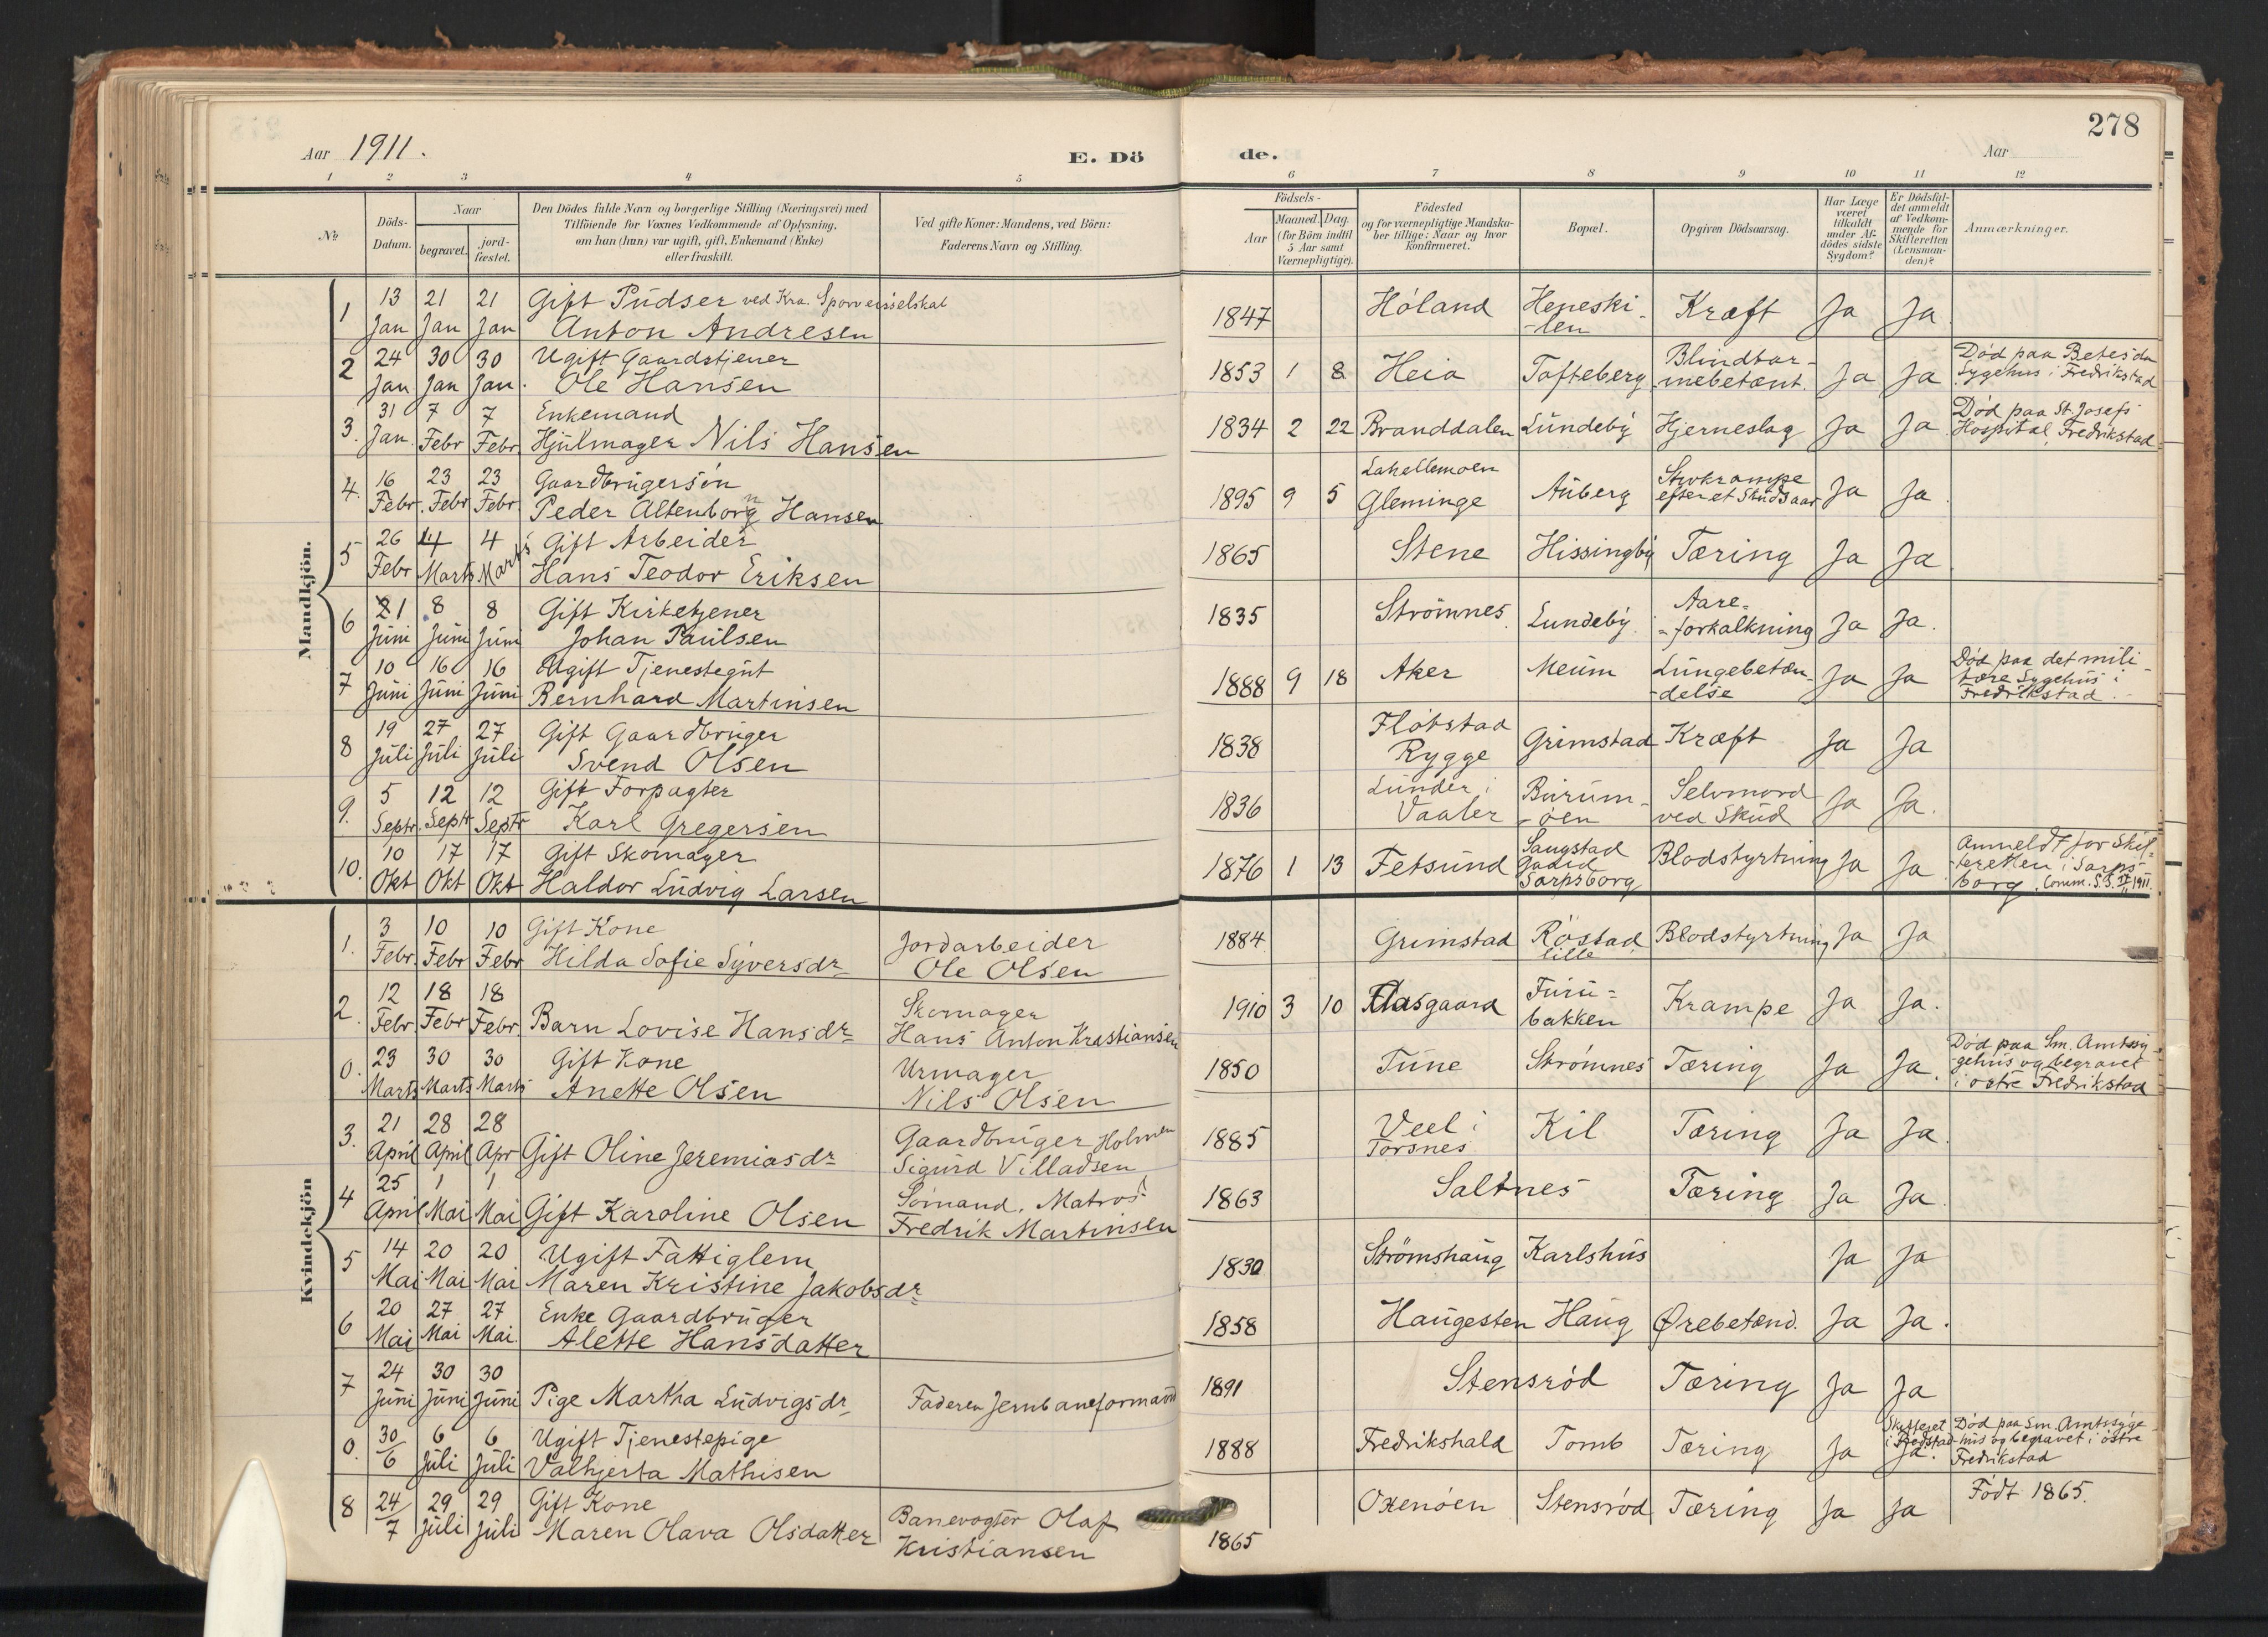 278
Aar 1911.
E. Dö
de.
Aar
1 2 3 4 5 6 7 8 9 10 11 12
№
Döds-Datum.
Naar
begravet.
jord-fæstet.
Den Dödes fulde Navn og borgerlige Stilling (Næringsvei) med
Tilföiende for Voxnes Vedkommende af Oplysning,
om han (hun) var ugift, gift, Enkemand (Enke)
eller fraskilt.
Ved gifte Koner: Mandens, ved Börn:
Faderens Navn og Stilling.
Födsels-
Aar
Maaned. Dag.
(for Börn indtil
5 Aar samt
Værnepligtige).
Födested
og for værnepligtige Mandska-
ber tillige: Naar og hvor
konfirmeret.
Bopæl.
Opgiven Dödsaarsag.
Har Læge
været
tilkaldt
under Af-
dödes sidste
Sygdom?
Er Dödsfal-
det anmeldt
af Vedkom-
mende for
Skifteretten
(Lensman-
den)?
Anmærkninger.
Mandkjön.
1 13 Jan 21 Jan 21 Jan Gift Pudser ved Kra. Sporveisselskab
Anton Andresen 1847 Höland Heneski-
-len Kræft Ja Ja
2 24 Jan 30 Jan 30 Jan. Ugift Gaardstjener
Ole Hansen 1853 1 8 Heia Tofteberg Blindtar-
mebetænt. Ja Ja Död paa Betesda
Sygehus i Fredrikstad
3. 31 Jan. 7 Febr 7 Febr. Enkemand
Hjulmager Nils Hansen 1834 2 22 Branddalen Lundeby Hjerneslag Ja Ja Död paa St. Josefs
Hospital, Fredrikstad
4. 16 Febr. 23 Febr 23 Febr. Gaardbrugersön
Peder Altenborg Hansen 1895 9 5 Lahellemoen
Gleminge Auberg Stivkrampe
efter et Skudsaar Ja Ja.
5 26 Febr 4 Marts 4 Marts Gift Arbeider
Hans Teodor Eriksen 1865 Stene Hissingby Tæring Ja Ja
6 1 Juni 8 Juni 8 Juni Gift Kirketjener
Johan Paulsen 1835 Strömnes. Lundeby. Aare-
-forkalkning Ja Ja.
7 10 Juni 16 Juni 16 Juni Ugift Tjenestegut
Bernhard Martinsen 1888 9 18 Aker Meum Lungebetæn-
-delse Ja Ja Död paa det mili-
tære Sygehus i
Fredrikstad.
8 19 Juli 27 Juli 27 Juli Gift Gaardbruger
Svend Olsen 1838 Flötstad
Rygge Grimstad Kræft Ja Ja
9. 5 Septr. 12 Septr 12 Septr Gift Forpagter
Karl Gregersen 1836 Lunder i
Vaaler Burum-
-öen Selvmord
ved Skud Ja Ja.
10. 10 Okt 17 Okt 17 Okt Gift Skomager
Haldor Ludvig Larsen 1876 1 13 Fetsund Sangstad
Gaard
Sarpsborg Blodstyrtning Ja Ja Anmeldt for Skif-
teretten i Sarps-
borg.
Kvindekjön
1. 3 Febr. 10 Febr 10 Febr Gift Kone
Hilda Sofie Syversdr Jordarbeider
Ole Olsen 1884 Grimstad Röstad
lille Blodstyrtning Ja Ja
2. 12 Febr 18 Febr 18 Febr. Barn Lovise Hansdr Skomager
Hans Anton Kristiansen 1910 3 10 Aasgaard Furu-
bakken Krampe Ja Ja.
0. 23 Marts 30 Marts 30 Marts Gift Kone
Anette Olsen Urmager
Nils Olsen 1850 Tune Strömnes Tæring Ja Ja. Död paa Sm. Amtssy-
gehus og begravet
i östre Fredrikstad
3. 21 April 28 April 28 Apr Gift Oline Jeremiasdr Gaardbruger Holmen
Sigurd Villadsen 1885 Veel i
Torsnes Kil Tæring Ja Ja.
4 25 April 1 Mai 1 Mai Gift Karoline Olsen Sömand, Matros
Fredrik Martinsen 1863 Saltnes Tæring Ja Ja.
5 14 Mai 20 Mai 20 Mai Ugift Fattiglem
Maren Kristine Jakobsdr 1830 Strömshaug Karlshus Ja Ja
6 20 Mai 27 Mai 27 Mai. Enke Gaardbruger
Alette Hansdatter 1858 Haugesten Haug Ørebetænd. Ja Ja.
7 24 Juni 30 Juni 30 Juni Pige Martha Ludvigsdr Faderen Jernbaneformand 1891 Stensröd Tæring Ja Ja
0. 30/6 6 Juli 6 Juli Ugift Tjenestepige
Valhjerta Mathisen 1888 Fredrikshald Tomb Tæring Ja Skifteret
i Fredstad
Ja. Död paa Sm. Amtssyge-
hus og begravet i östre
Fredrikstad
8 24/7 29 Juli 29 Juli Gift Kone
Maren Olava Olsdatter Banevogter Olaf
Kristiansen 1865 Oxenöen Stensröd Tæring Ja Ja Födt 1865.